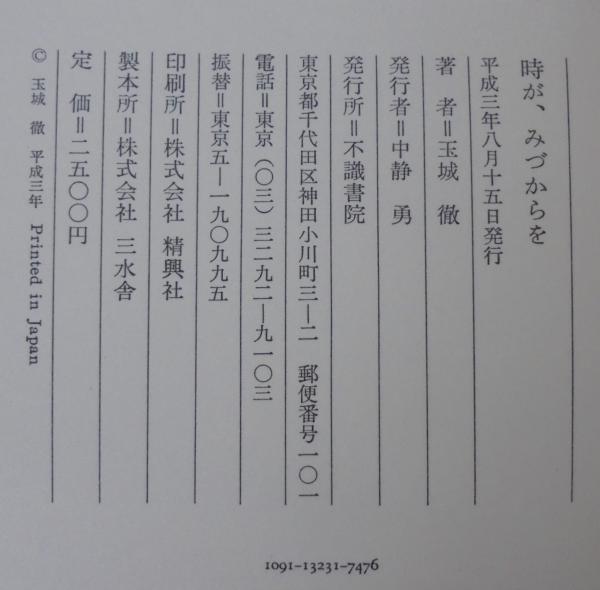 時が、みづからを
平成三年八月十五日発行
著　者＝玉城　徹
発行者＝中静　勇
発行所＝不識書院
東京都千代田区神田小川町三―二　郵便番号一〇一
電話＝東京（〇三）三二九二―九一〇三
振替＝東京五―一九〇九九五
印刷所＝株式会社 精興社
製本所＝株式会社 三水舎
定　価＝二五〇〇円
© 玉城　徹　平成三年　Printed in Japan
1091-13231-7476